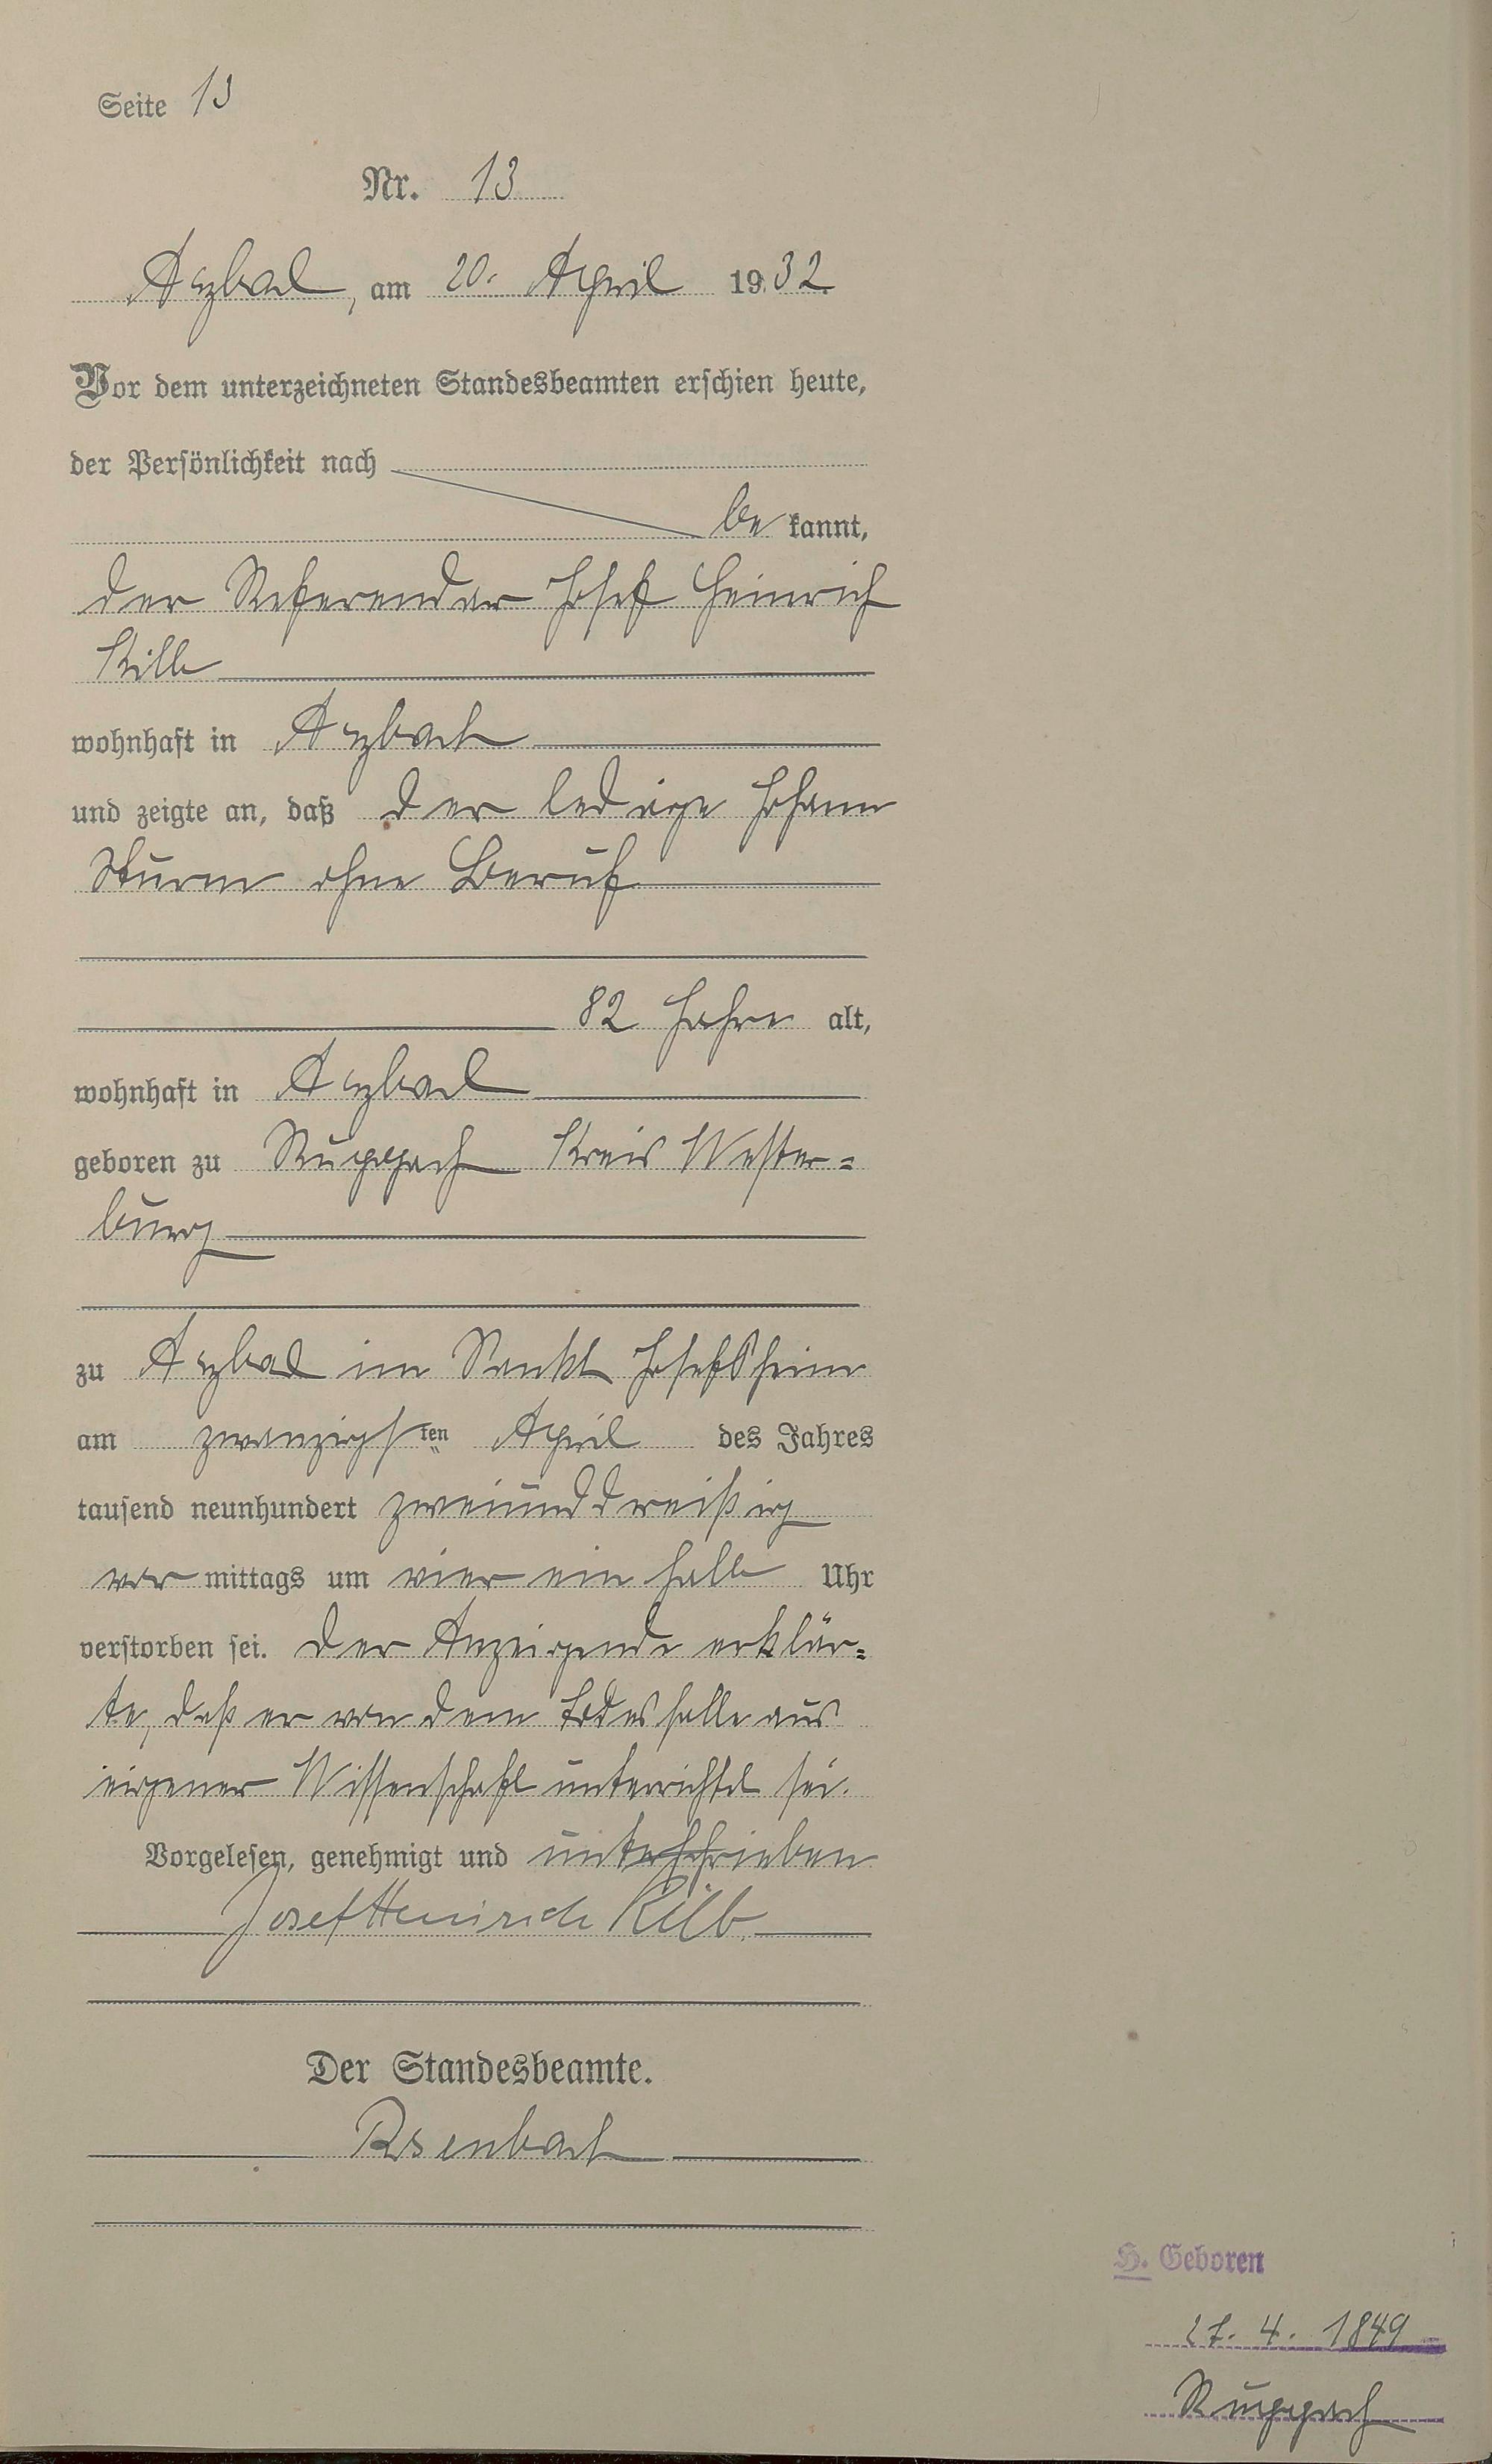 Seite 13
Nr. 13
Arzbach, am 20. April 1932
Vor dem unterzeichneten Standesbeamten erschien heute,
der Persönlichkeit nach
bekannt,
der Referendar Josef Heinrich
Kilb
wohnhaft in Arzbach
und zeigte an, daß der ledige Johann
Sturm ohne Beruf
82 Jahre alt,
wohnhaft in Arzbach
geboren zu Ruppach Kreis Wester=
burg
zu Arzbach im Sankt Josefsheim
am zwanzigsten April des Jahres
tausend neunhundert zweiunddreißig
vormittags um vier ein halb Uhr
verstorben sei. Der Anzeigende erklär=
te, daß er von dem Todesfalle aus
eigener Wissenschaft unterrichtet sei.
Vorgelesen, genehmigt und unterschrieben
Josef Heinrich Kilb
Der Standesbeamte.
H. Geboren
27. 4. 1849
Ruppach